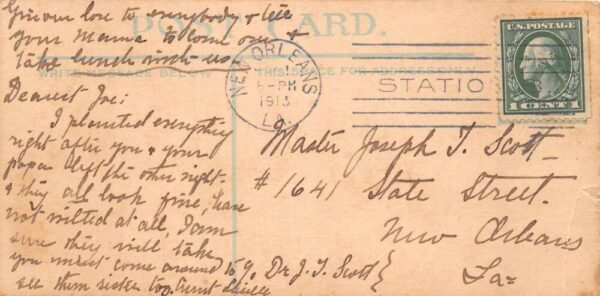 Give our love to everybody & tell
your Mama to come over &
take lunch with us
POST CARD.
WRITE MESSAGE BELOW
THIS SPACE FOR ADDRESS ONLY
Dearest Joe:
I planted everything
right after you & your
papa left the other night
& they all look fine, have
not wilted at all, I am
sure they will take
you must come around to
see them sister too. Aunt
NEW ORLEANS
5-PM
1913
LA
STATIO
U.S. POSTAGE
1 CENT 1
Master Joseph T. Scott
# 1641 State Street.
New Orleans
La-
% Dr J. T. Scott }